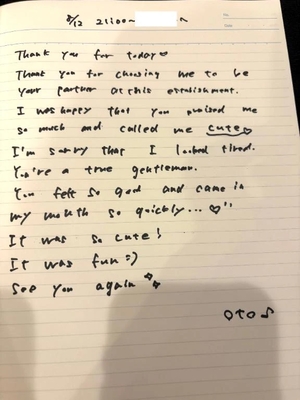 8/12 21:00~
Thank you for today♡
Thank you for choosing me to be
your partner at this establishment.
I was happy that you praised me
so much and called me cute♡
I'm sorry that I looked tired.
You're a true gentleman.
You felt so good and came in
my mouth so quickly...♡
It was so cute!
It was fun :)
See you again
oto♪